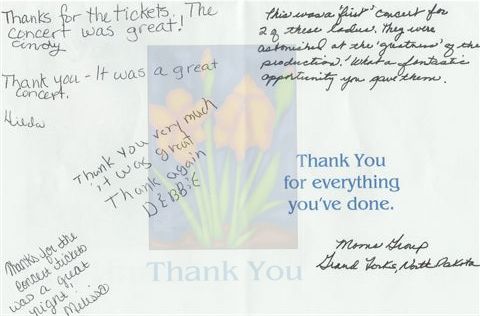 Thanks for the tickets. The
concert was great!
Cindy
Thank you - It was a great
concert.
Hilda
Thank you very much
it was great
Thank again
DEBBIE
Thanks for the
concert tickets
was a great
night!!
Melissa
This was a 'first' concert for
2 of these ladies. They were
astonished at the 'greatness' of the
production! What a fantastic
opportunity you gave them.
Thank You
for everything
you've done.
Moms Group
Grand Forks, North Dakota
Thank You